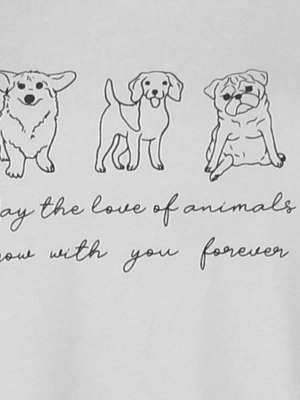 ay the love of animals
ow with you forever